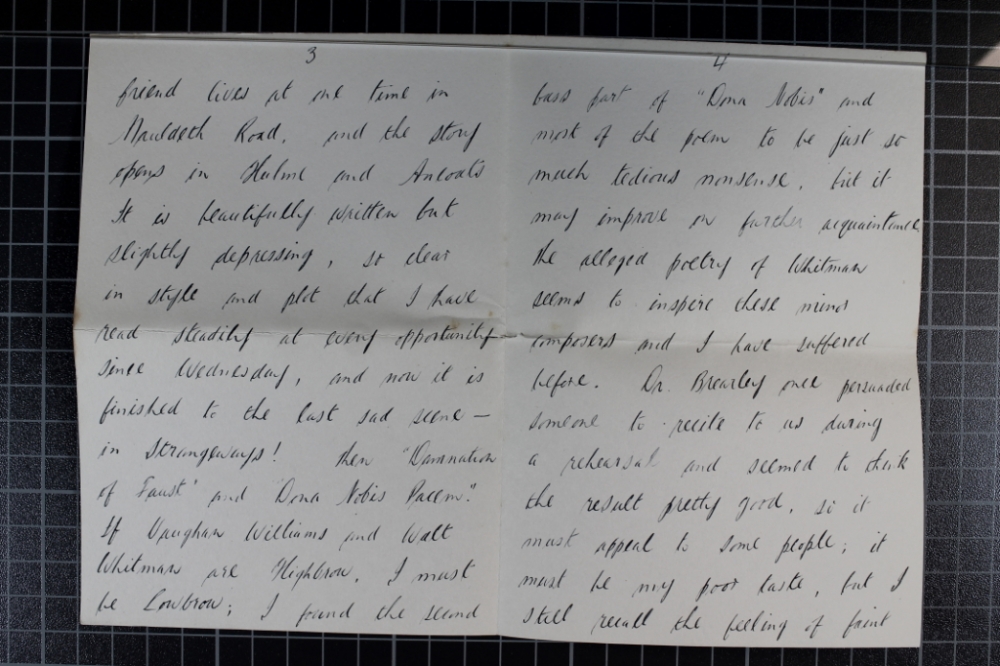 3
friend lives at one time in
Mauldeth Road, and the story
opens in Hulme and Ancoats
It is beautifully written but
slightly depressing, so clear
in style and plot that I have
read steadily at every opportunity
since Wednesday, and now it is
finished to the last sad scene —
in Strangeways! Then "Damnation
of Faust" and "Dona Nobis Pacem."
If Vaughan Williams and Walt
Whitman are Highbrow, I must
be Lowbrow; I found the second
4
bass part of "Dona Nobis" and
most of the poem to be just so
much tedious nonsense, but it
may improve on further acquaintance
the alleged poetry of Whitman
seems to inspire these minor
composers and I have suffered
before. Dr. Brearley once persuaded
someone to recite to us during
a rehearsal and seemed to think
the result pretty good, so it
must appeal to some people; it
must be my poor taste, but I
still recall the feeling of faint